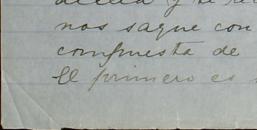 nos saque con
compuesta de
El primero es